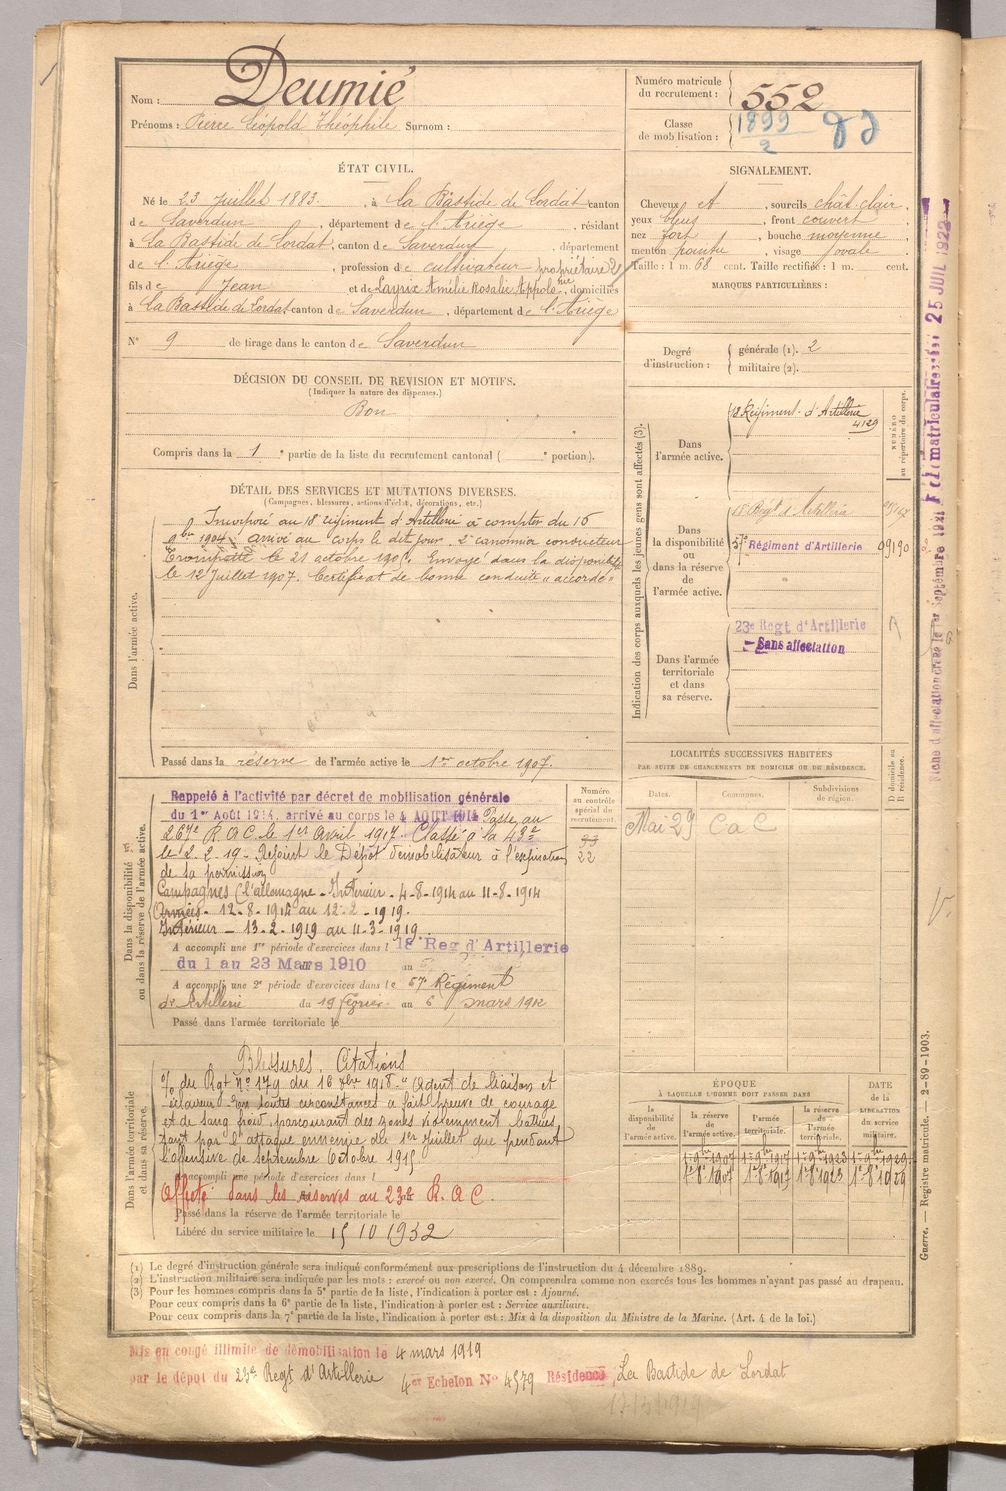 Nom : Deumié
Prénoms : Pierre Léopold Théophile Surnom :
Numéro matricule du recrutement : 552
Classe de mobilisation : 1899
2
ÉTAT CIVIL.
Né le 23 Juillet 1883. , à La Bastide de Lordat canton
de Saverdun , département de l'Ariège , résidant
à La Bastide de Lordat , canton de Saverdun , département
de l'Ariège , profession de cultivateur propriétaire
fils de Jean et de Amélie Rosalie , domiciliés
à La Bastide de Lordat canton de Saverdun , département de l'Ariège
N° 9 de tirage dans le canton de Saverdun
SIGNALEMENT.
Cheveux et , sourcils chât. clair .
yeux bleus , front couvert
nez fort , bouche moyenne ,
menton pointu , visage ovale .
Taille : 1 m. 68 cent. Taille rectifiée : 1 m. cent.
MARQUES PARTICULIÈRES :
Degré d'instruction : générale (1). 2
militaire (2).
DÉCISION DU CONSEIL DE REVISION ET MOTIFS.
(Indiquer la nature des dispenses.)
Bon
Compris dans la 1 e partie de la liste du recrutement cantonal ( e portion).
DÉTAIL DES SERVICES ET MUTATIONS DIVERSES.
(Campagnes, blessures, actions d'éclat, décorations, etc.)
Dans l'armée active.
Incorporé au 18e régiment d'Artillerie à compter du 16
9bre 1904, arrivé au corps le dit jour, 2e canonnier conducteur
Trompette le 21 octobre 1905. Envoyé dans la disponibilité
le 12 Juillet 1907. Certificat de bonne conduite "accordé"
Passé dans la réserve de l'armée active le 1er octobre 1907.
Indication des corps auxquels les jeunes gens sont affectés (3).
NUMÉRO au répertoire du corps.
Dans l'armée active.
18 Régiment d'Artillerie
4129
Dans la disponibilité ou dans la réserve de l'armée active.
18 Régt d'Artillerie
57e Régiment d'Artillerie
Dans l'armée territoriale et dans sa réserve.
23e Regt d'Artillerie
Sans affectation
LOCALITÉS SUCCESSIVES HABITÉES
PAR SUITE DE CHANGEMENTS DE DOMICILE OU DE RÉSIDENCE.
Dates. Communes. Subdivisions de région. D domicile ou R résidence.
Mai 29 CaC
Dans la disponibilité ou dans la réserve de l'armée active.
Numéro au contrôle spécial du recrutement.
22
Rappelé à l'activité par décret de mobilisation générale
du 1er Août 1914, arrivé au corps le 4 AOUT 1914 Passe au
267e R.A.C. le 1er Avril 1917. Classé à la 43e
le 2-2-19 - Rejoint le Dépôt démobilisateur à l'expiration
de sa permission
Campagnes C/l'allemagne - Intérieur - 4-8-1914 au 11-8-1914
Armées - 12-8-1914 au 12-2-1919.
Intérieur - 13-2-1919 au 11-3-1919
A accompli une 1re période d'exercices dans l 18e Reg d'Artillerie
du 1 au 23 Mars 1910 au
A accompli une 2e période d'exercices dans le 57e Régiment
d'Artillerie du 19 février au 6 mars 1912
Passé dans l'armée territoriale le
Dans l'armée territoriale et dans sa réserve.
Blessures, Citations
du Rgt N° 179 du 16 1918 "Agent de liaison et
éclaireur toutes circonstances a fait preuve de courage
et de sang froid, parcourant des zones violemment battues
tant par l'attaque ennemie du 1er Juillet que pendant
l'offensive de Septembre Octobre 191
A accompli une période d'exercices dans l
Affecté dans les réserves au 23e R.A.C.
Passé dans la réserve de l'armée territoriale le
Libéré du service militaire le 15 10 1932
ÉPOQUE
À LAQUELLE L'HOMME DOIT PASSER DANS
la disponibilité de l'armée active. la réserve de l'armée active. l'armée territoriale. la réserve de l'armée territoriale. DATE de la LIBÉRATION du service militaire.
1er 9bre 1907 1er 9bre 1917 1er 9bre 1923 1er 9bre 1929
1er 8bre 1907 1er 8bre 1917 1er 8bre 1923 1er 8bre 1929
(1) Le degré d'instruction générale sera indiqué conformément aux prescriptions de l'instruction du 4 décembre 1889.
(2) L'instruction militaire sera indiquée par les mots : exercé ou non exercé. On comprendra comme non exercés tous les hommes n'ayant pas passé au drapeau.
(3) Pour les hommes compris dans la 5e partie de la liste, l'indication à porter est : Ajourné.
Pour ceux compris dans la 6e partie de la liste, l'indication à porter est : Service auxiliaire.
Pour ceux compris dans la 7e partie de la liste, l'indication à porter est : Mis à la disposition du Ministre de la Marine. (Art. 4 de la loi.)
Mis en congé illimité de démobilisation le 4 mars 1919
par le dépôt du 23e Regt d'Artillerie 4er Echelon N° 4579 Résidence La Bastide de Lordat
Guerre. — Registre matricule. — 2-89-1903.
25 JUIL 1922